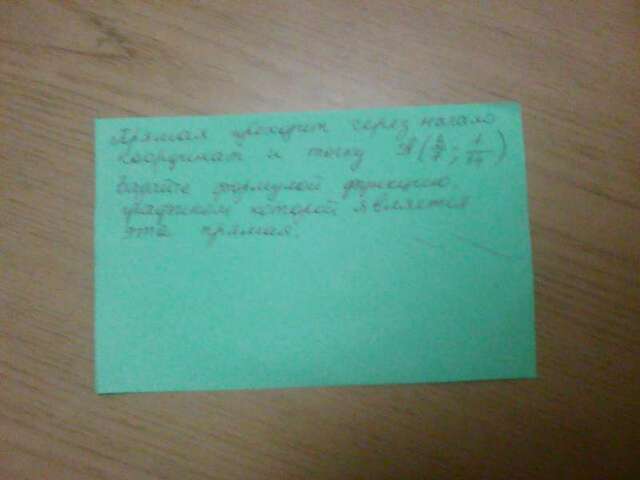 Прямая проходит через начало
координат и точку A(
; 1/14)
Задайте формулой функцию,
графиком которой является
эта прямая.